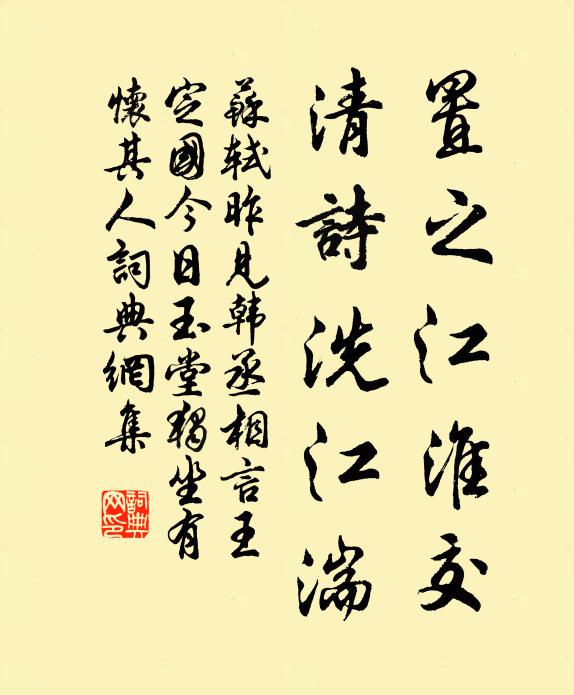 置之江淮交
清詩洗江湍
蘇軾昨見韓丞相言王
定國今日玉堂獨坐有
懷其人詞典網集
詞典
网印